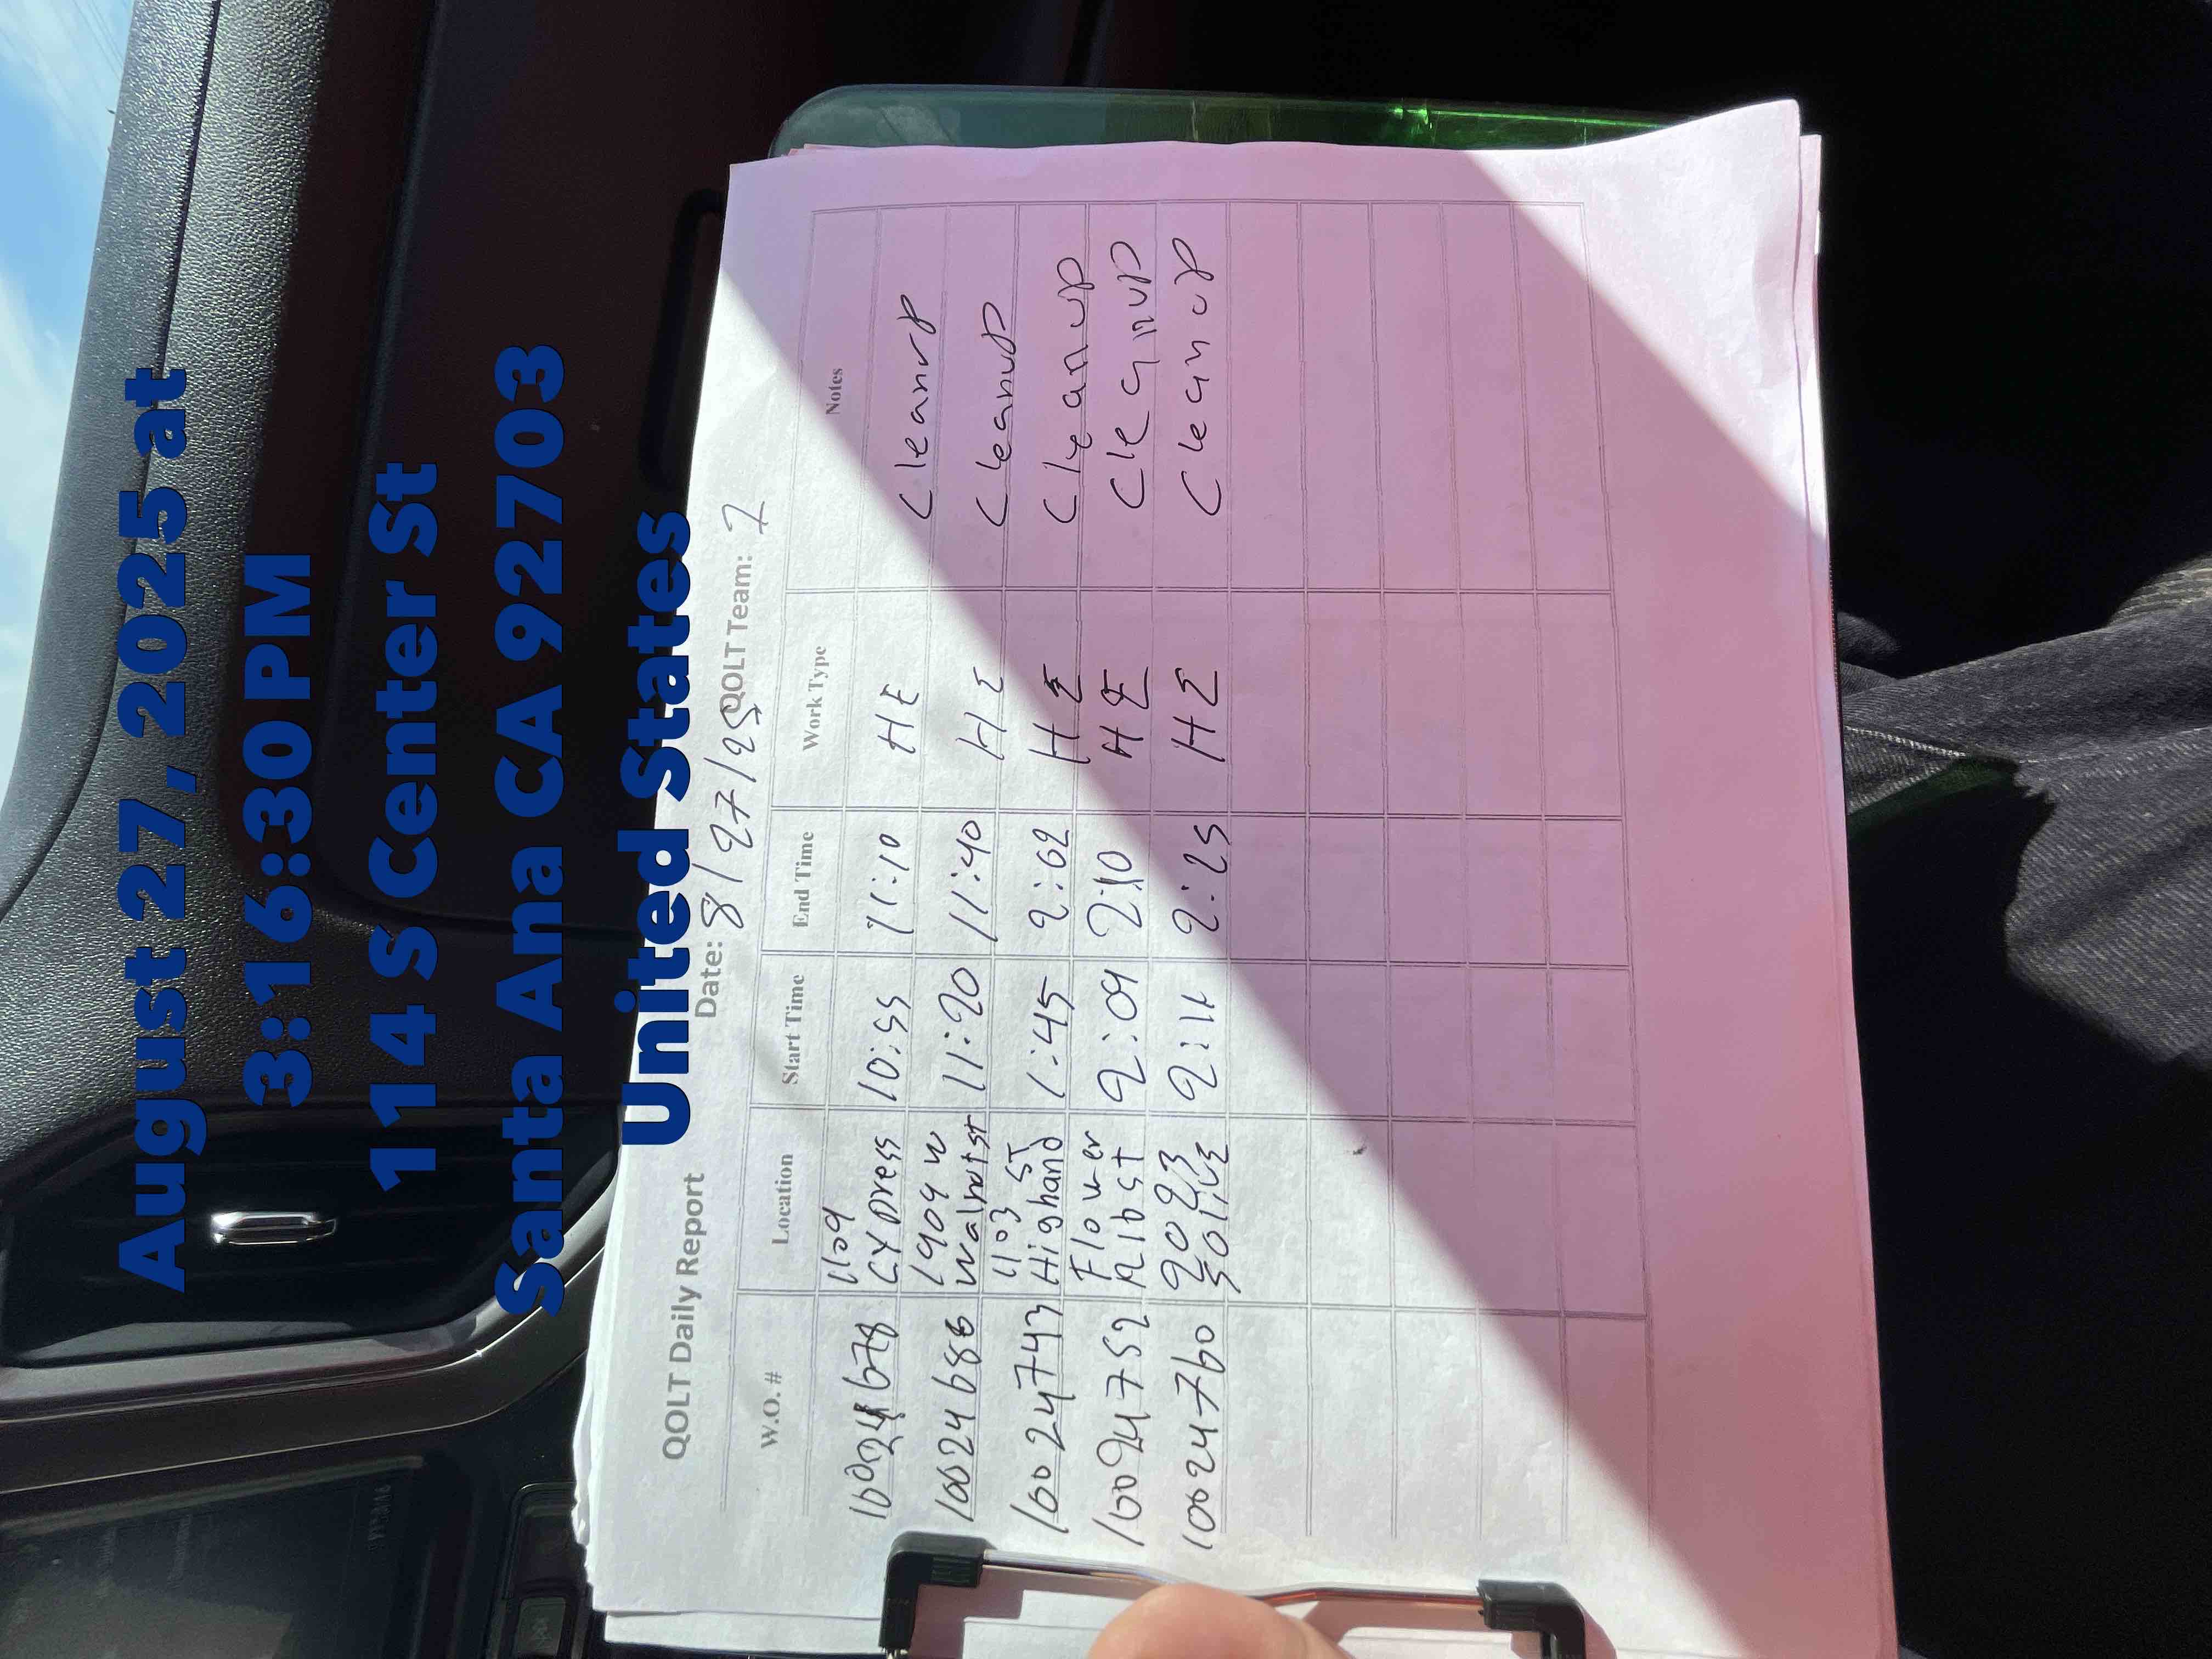 August 27, 2025 at
3:16:30 PM
114 S Center St
Santa Ana CA 92703
United States
QOLT Daily Report Date: 8/27/25 QOLT Team: 7
W.O. # Location Start Time End Time Work Type Notes
10024678 1109 Cypress 10:55 11:10 HE Cleanup
10024686 1909 W Walnut st 11:20 11:40 HE Cleanup
10024743 1103 Highand ST 1:45 HE Cleanup
10024752 Flower 2:09 2:10 HE Cleanup
10024760 2:11 2:25 HE Cleanup